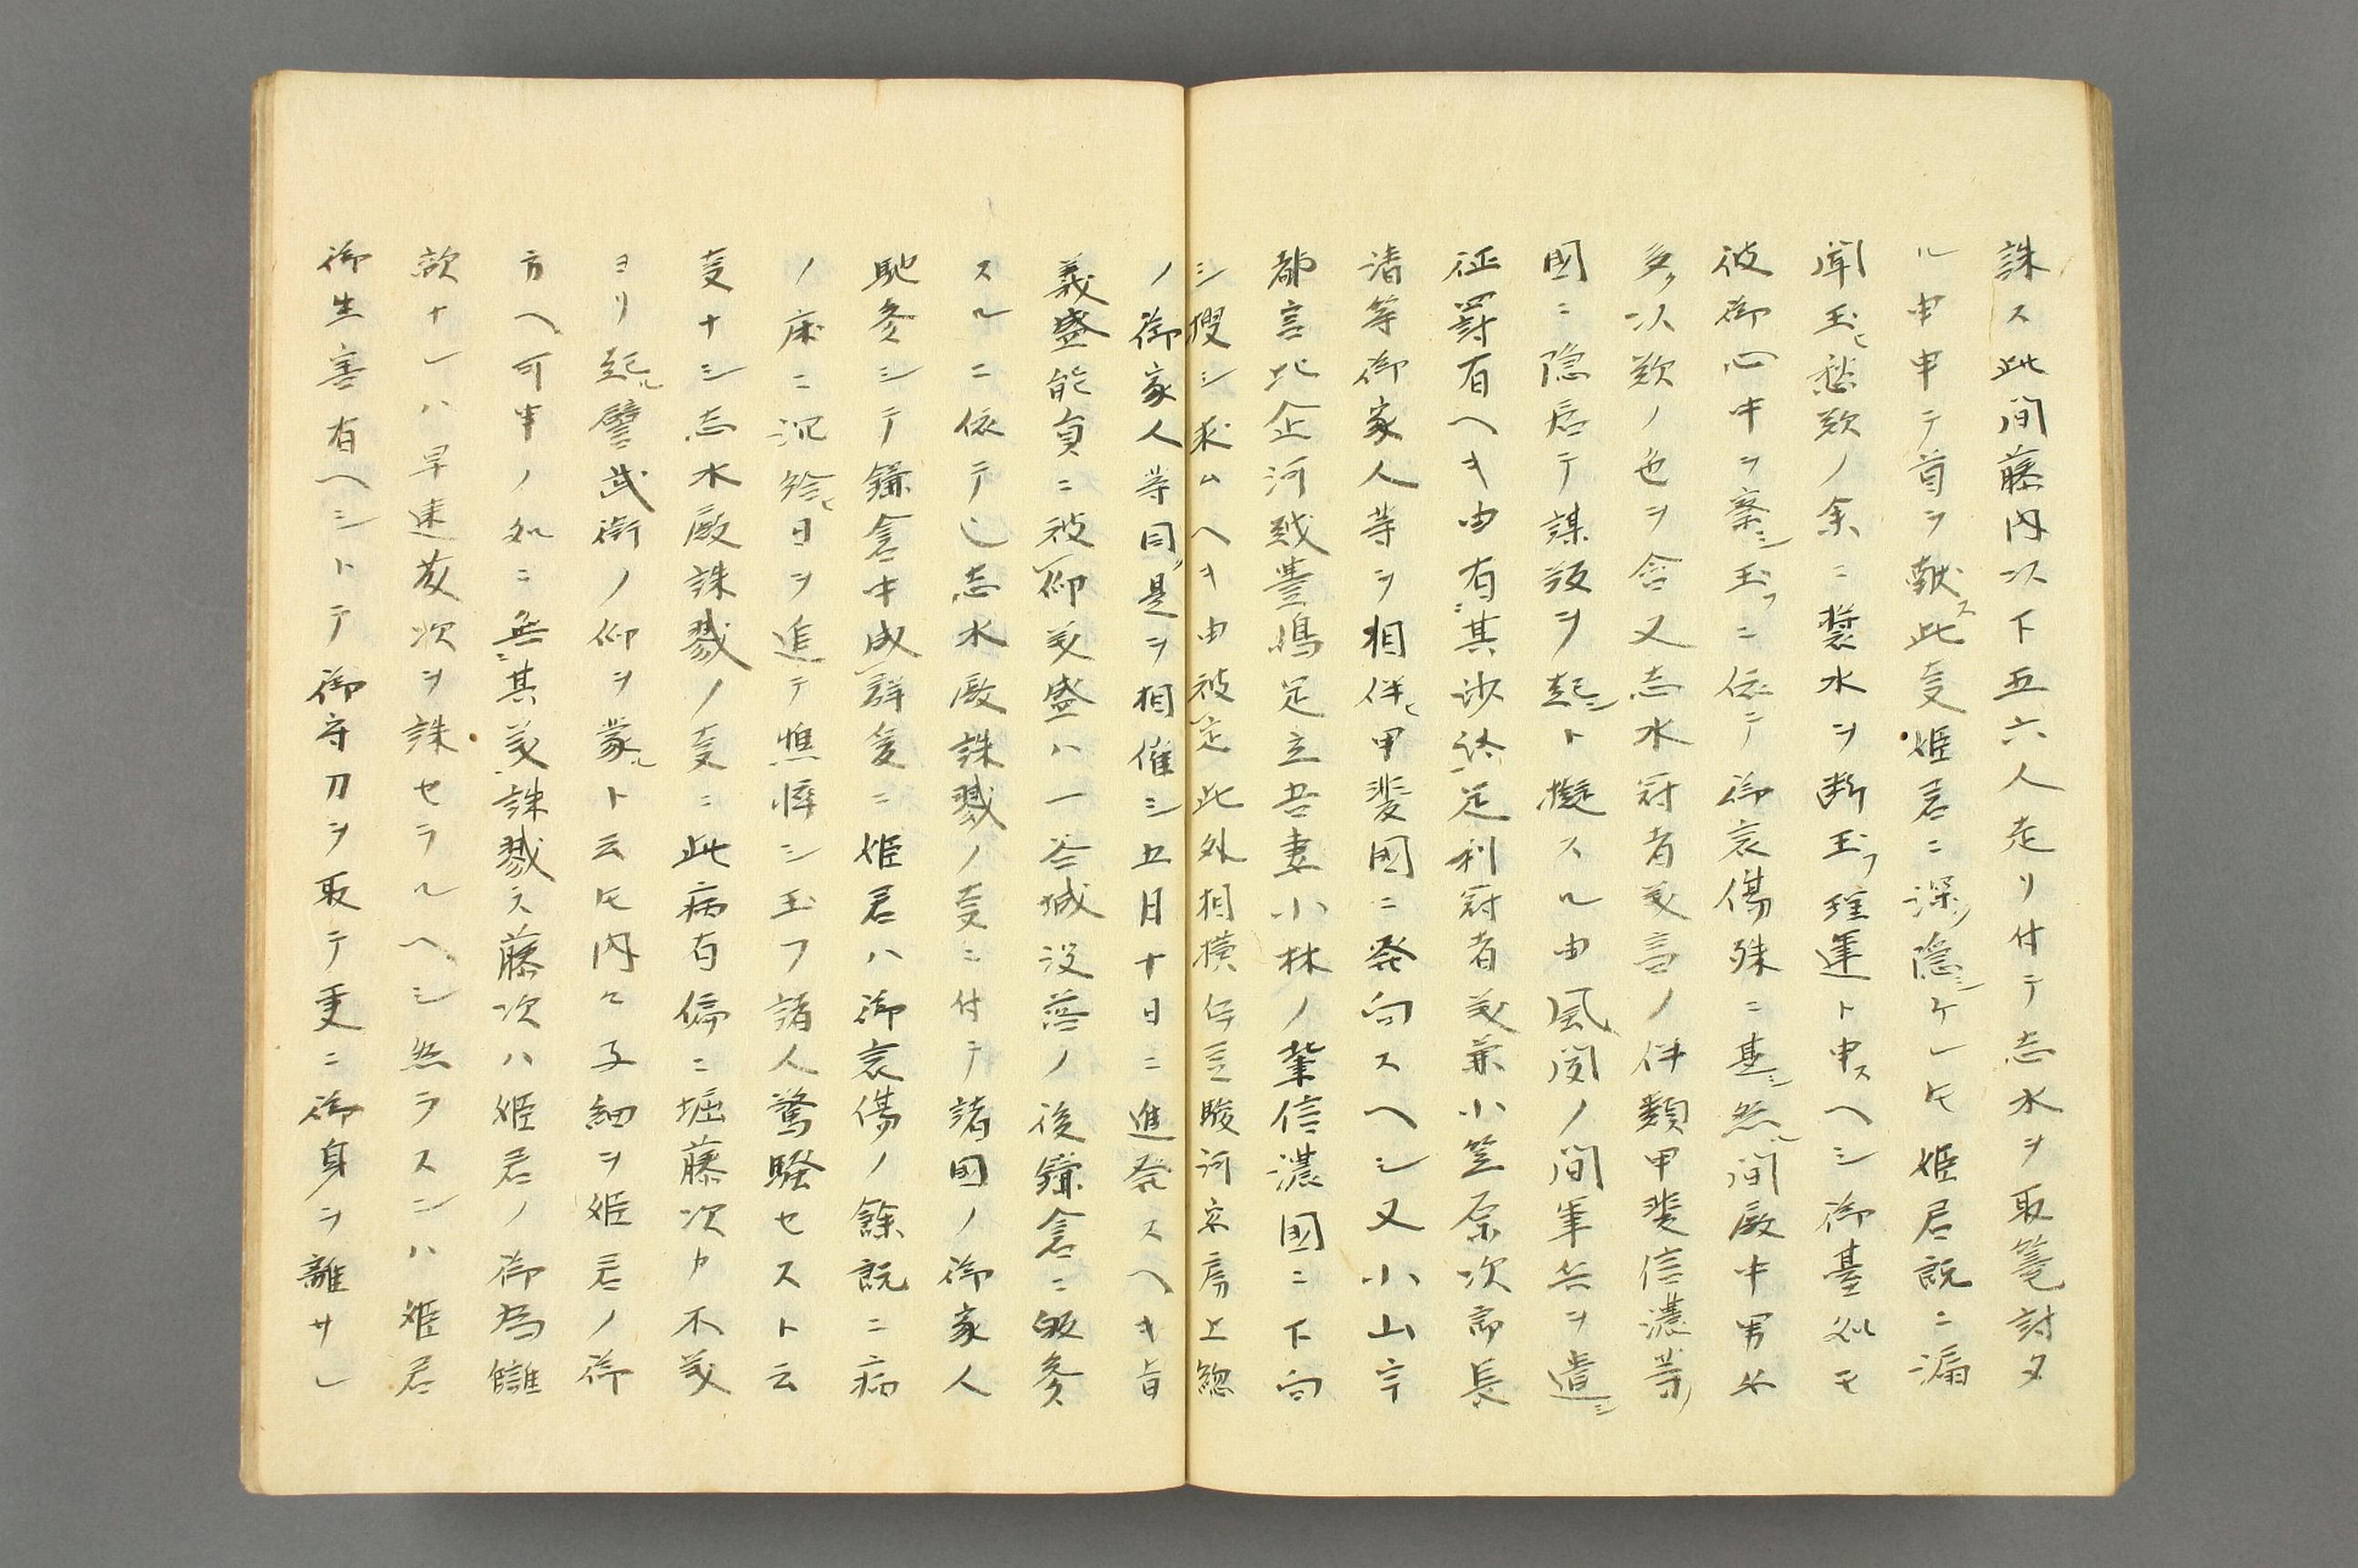 誅ス此間藤内以下五六人走リ付テ志水ヲ取篭討タ
ル申申テ首ヲ献ス此叓姫君ニ深ク隠シケレ𪜈姫君既ニ漏
聞玉ヒ愁歎ノ余ニ漿水ヲ断玉フ理運ト申スヘシ御臺処モ
彼御心中ヲ察シ玉フニ依テ御哀傷殊ニ甚シ然ル間殿中男女
多ク以歎ノ色ヲ含又志水冠者義高ノ伴類甲斐信濃等ノ
國ニ隠居テ謀叛ヲ起シト擬スル由風聞ノ間軍兵ヲ遣シ
征罸有ヘキ由有其沙汰足利冠者義兼小笠原次郎長
清等御家人等ヲ相伴ヒ甲斐國ニ発向スヘシ又小山宇
都宮比企河越豊嶋足立吾妻小林ノ輩信濃國ニ下向
シ捜シ求ムヘキ由被定此外相模伊豆駿河安房上総
ノ御家人等同ク是ヲ相催シ五月十日ニ進発スヘキ旨
義盛能員ニ被仰義盛ハ一谷城没落ノ後鎌倉ニ皈参
スルニ依テ也志水殿誅戮ノ叓ニ付テ諸国ノ御家人
馳参シテ鎌倉中成群爰ニ姫君ハ御哀傷ノ餘既ニ病
ノ床ニ沉給ヒ日ヲ追テ憔悴シ玉フ諸人驚騒セスト云
叓ナシ志水殿誅戮ノ叓ニ此病有偏ニ堀藤次カ不義
ヨリ起ル譬武衛ノ仰ヲ蒙ルト云𪜈内々子細ヲ姫君ノ御
方ヘ可申ノ処ニ無其義誅戮ス藤次ハ姫君ノ御為讎
敵ナレハ早速藤次ヲ誅セラルヘシ然ラスンハ姫君
御生害有ヘシトテ御守刀ヲ取テ更ニ御身ヲ離サレ